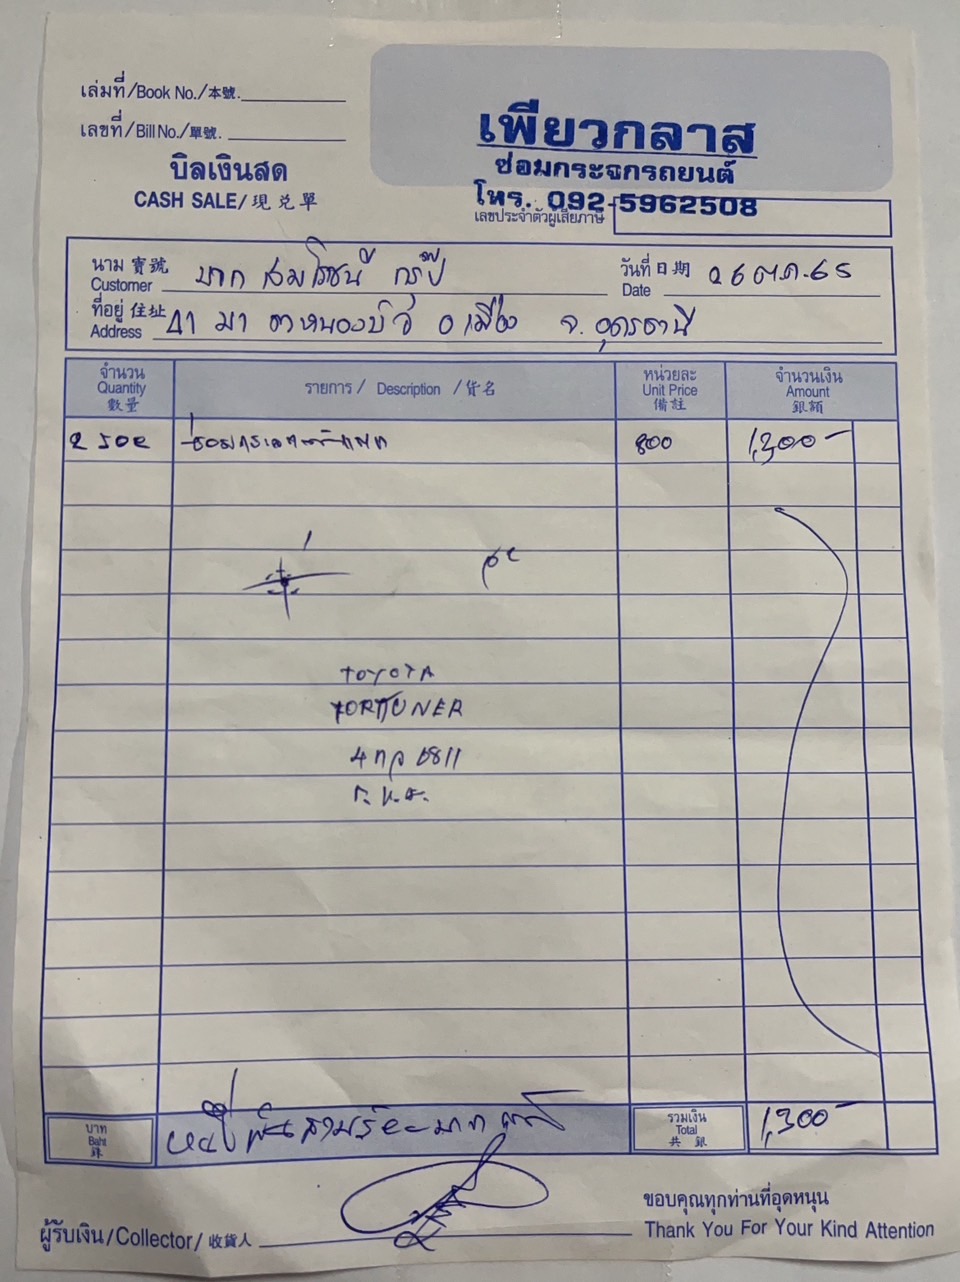 เล่มที่/Book No./本號.
เลขที่/Bill No./單號.
บิลเงินสด
CASH SALE/現兑單
เพียวกลาส
ซ่อมกระจกรถยนต์
โทร. 092-5962508
เลขประจำตัวผู้เสียภาษี
นาม 寶號 Customer
วันที่ 日期 Date 26 ต.ค. 65
ที่อยู่ 住址 Address อ เมือง จ. อุดรธานี
จำนวน Quantity 數量 รายการ / Description / 貨名 หน่วยละ Unit Price 備註 จำนวนเงิน Amount 銀額
2 รอย 800 1,300-
TOYOTA
FORTUNER
4 กจ 6811
ก.ท.ม.
บาท Baht 銖 หนึ่งพันสามร้อยบาทถ้วน รวมเงิน Total 共銀 1,300-
ขอบคุณทุกท่านที่อุดหนุน
ผู้รับเงิน/Collector/收貨人 Thank You For Your Kind Attention